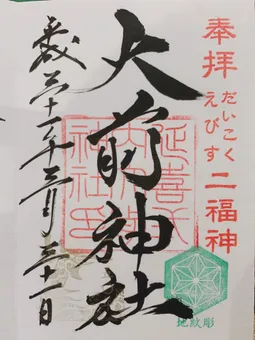 奉拝
だいこく
えびす
二福神
大前神社
平成三十一年三月三十一日
延喜式
内
神社印
地紋彫